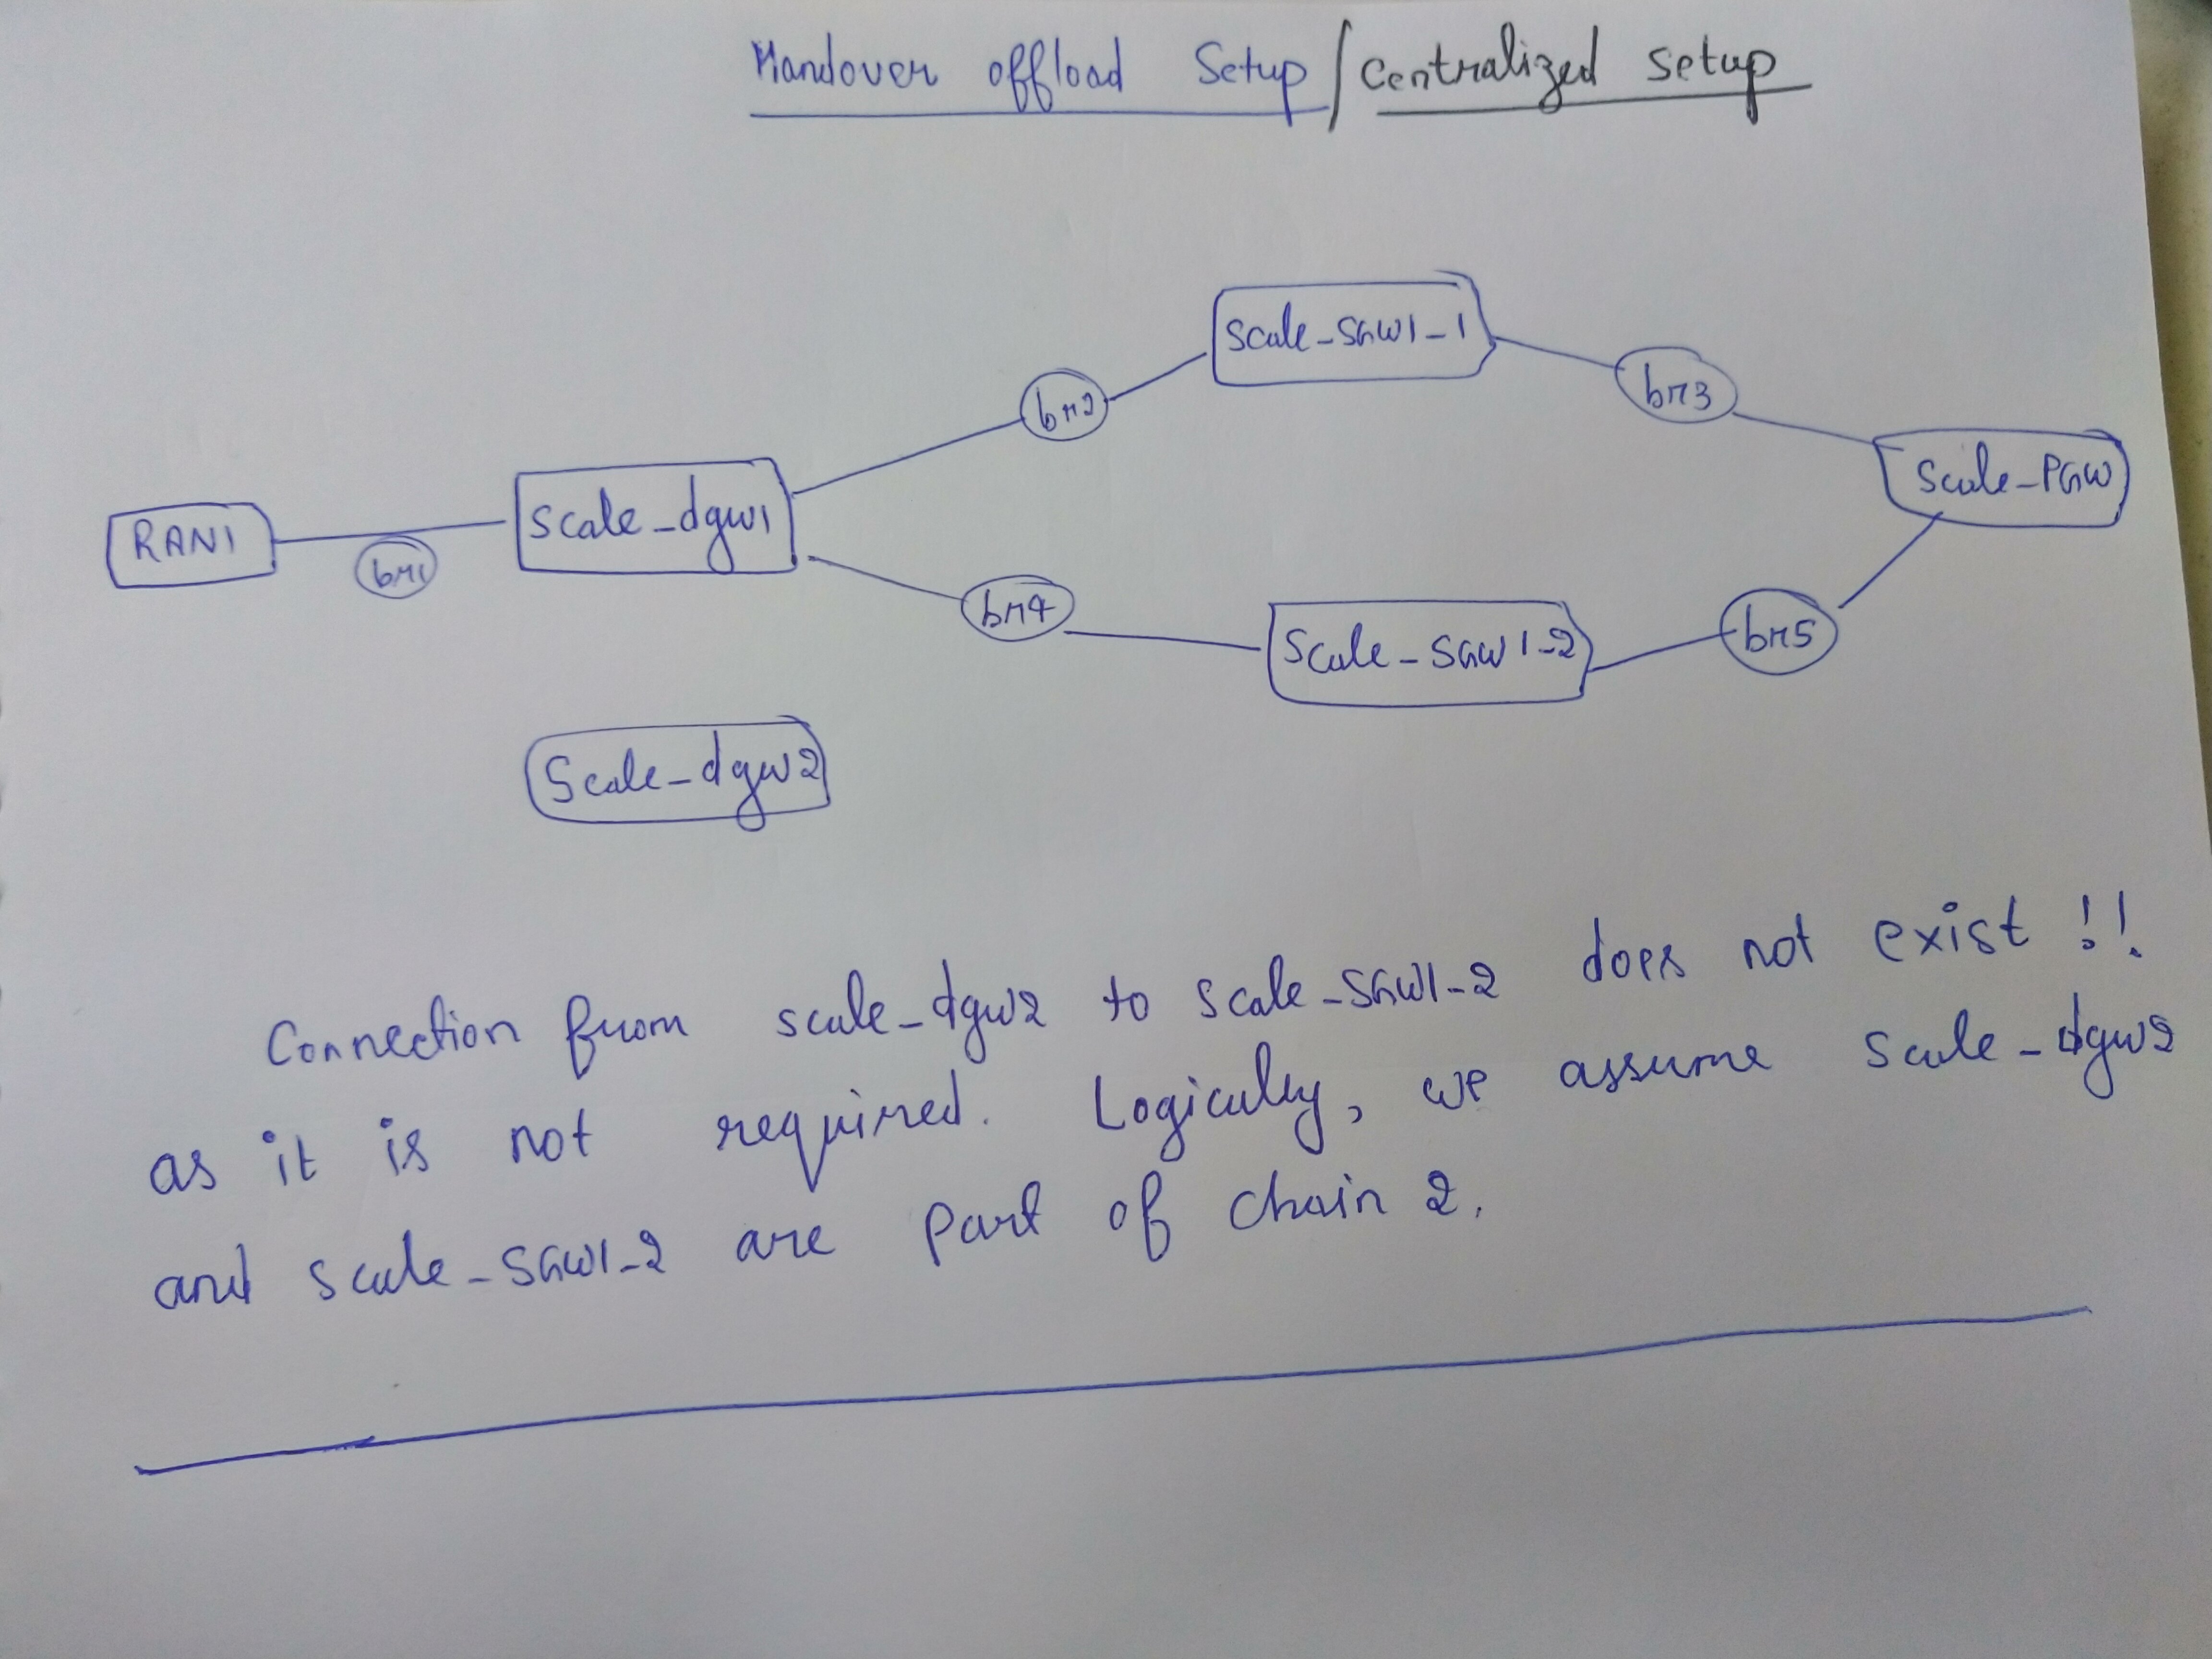 Handover offload Setup / Centralized setup
scale_sgw1_1
br2
br3
scale_PGW
scale_dgw1
RAN1
br1
br4
scale_sgw1_2
br5
Scale_dgw2
Connection from scale_dgw2 to scale_sgw1_2 does not exist !!
as it is not required. Logically, we assume scale_dgw2
and scale_sgw1_2 are part of chain 2.